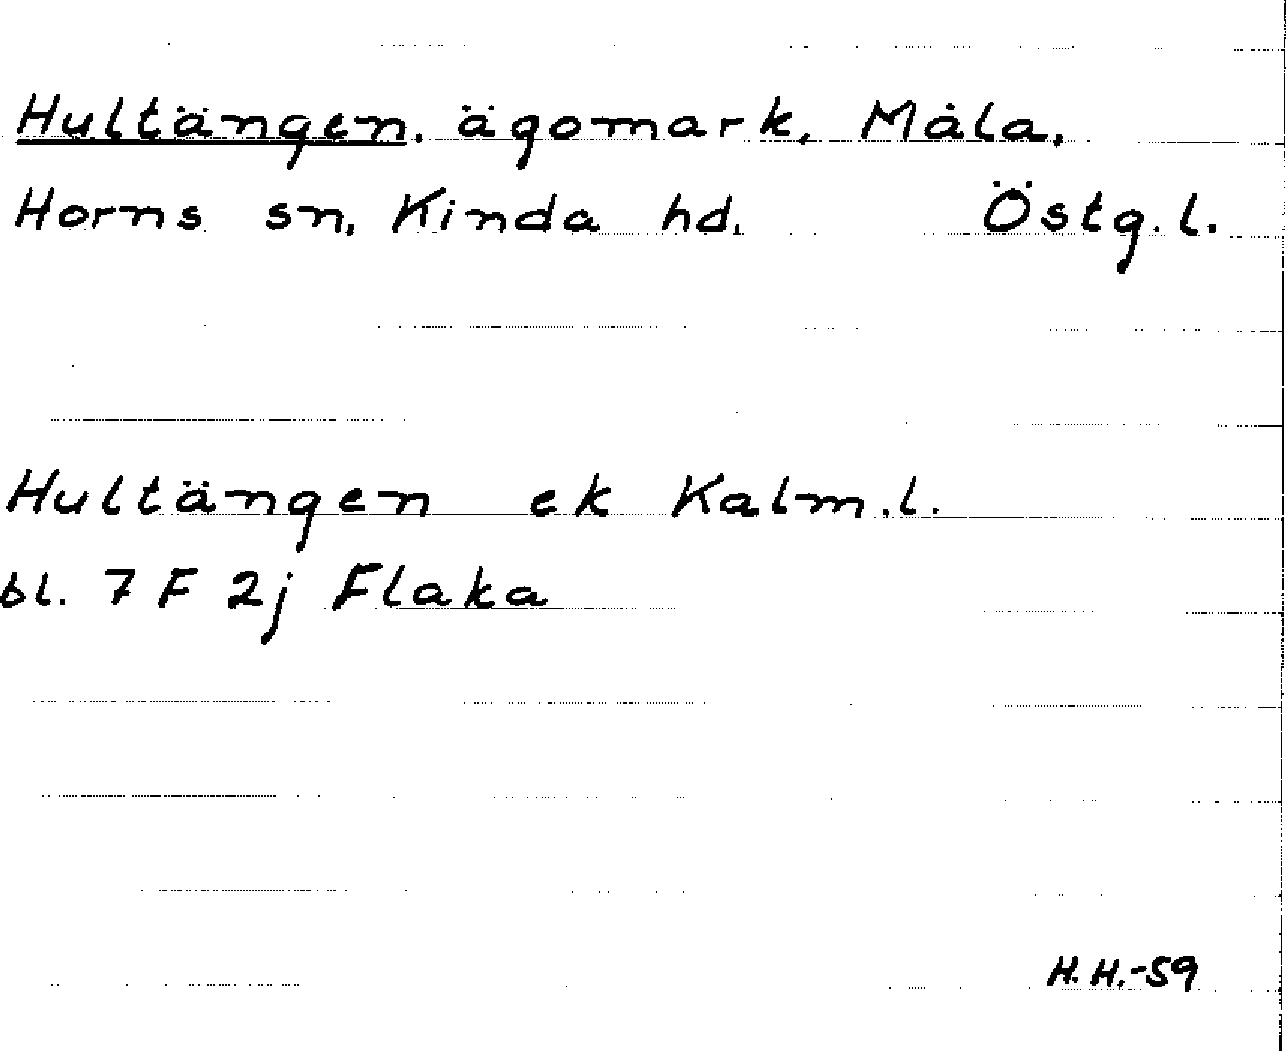 Hultängen, ägomark, Måla,
Horns sn, Kinda hd. Östg.l.
Hultängen ek Kalm.l.
bl. 7 F 2j Flaka
H.H.-59